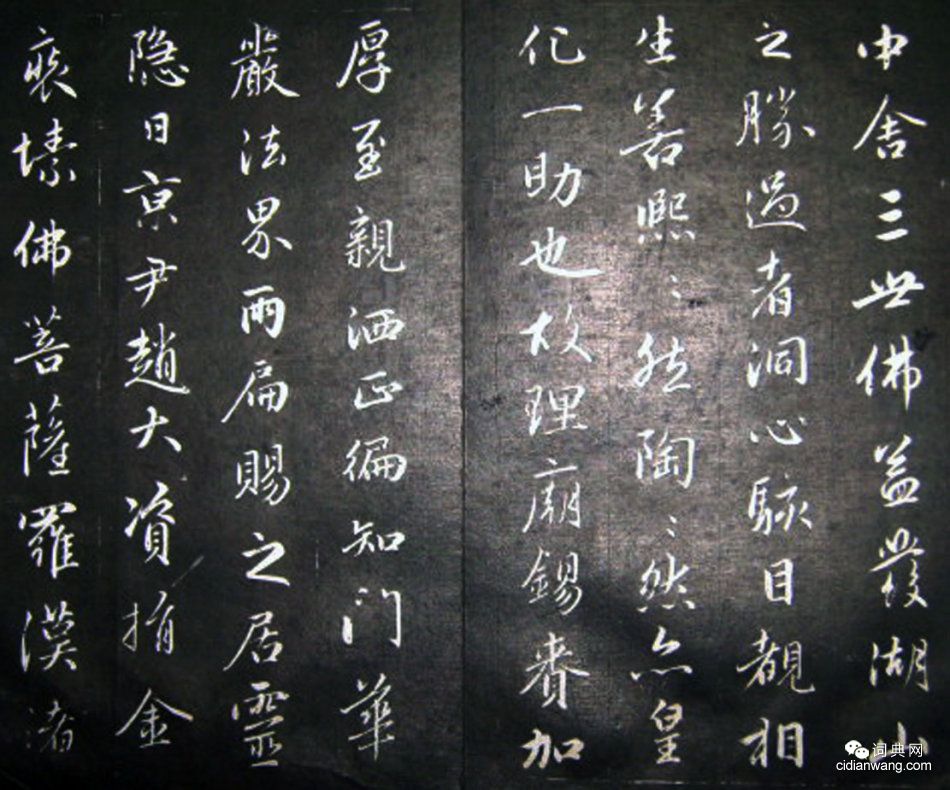 中舍三世佛益發湖山
之勝過者洞心駭目覩相
生善熙〻然陶〻然亦皇
化一助也故理廟錫賚加
厚至親洒正徧知門華
嚴法界兩扁賜之居靈
隐日京尹趙大資捐金
裒塐佛菩薩羅漢諸
词典网
cidianwang.com